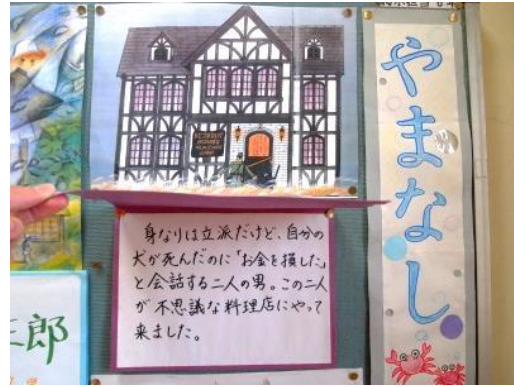 身なりは立派だけど、自分の
犬が死んだのに「お金を損した」
と会話する二人の男。この二人
が不思議な料理店にやって
来ました。
やまなし
三郎